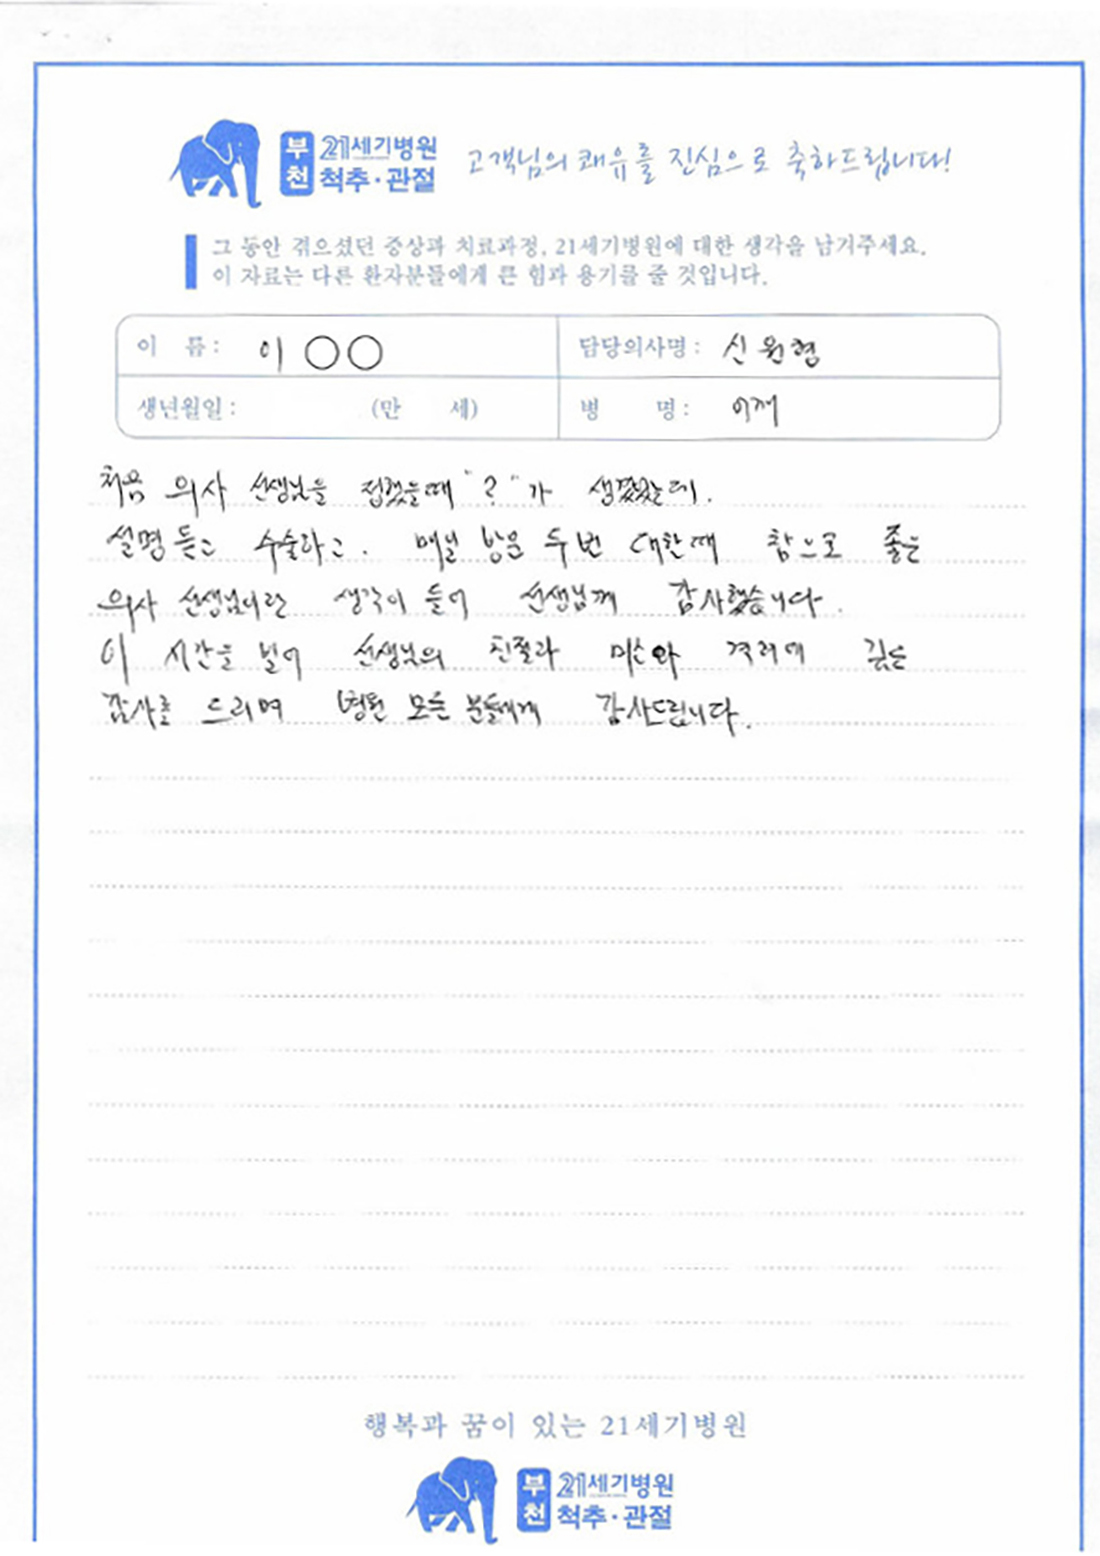 부천 21세기병원 척추·관절 고객님의 쾌유를 진심으로 축하드립니다!
그 동안 겪으셨던 증상과 치료과정, 21세기병원에 대한 생각을 남겨주세요.
이 자료는 다른 환자분들에게 큰 힘과 용기를 줄 것입니다.
이 름: 이 ○○ 담당의사명: 신원형
생년월일: (만 세) 병 명: 어깨
처음 의사 선생님을 접했을때 "?"가 생겼었는데.
설명듣고 수술하고. 매일 방문 두번 대할때 참으로 좋은
의사 선생님이란 생각이 들어 선생님께 감사했습니다.
이 시간을 빌어 선생님의 친절과 미소와 격려에 깊은
감사를 드리며 병원 모든 분들에게 감사드립니다.
행복과 꿈이 있는 21세기병원
부천 21세기병원 척추·관절